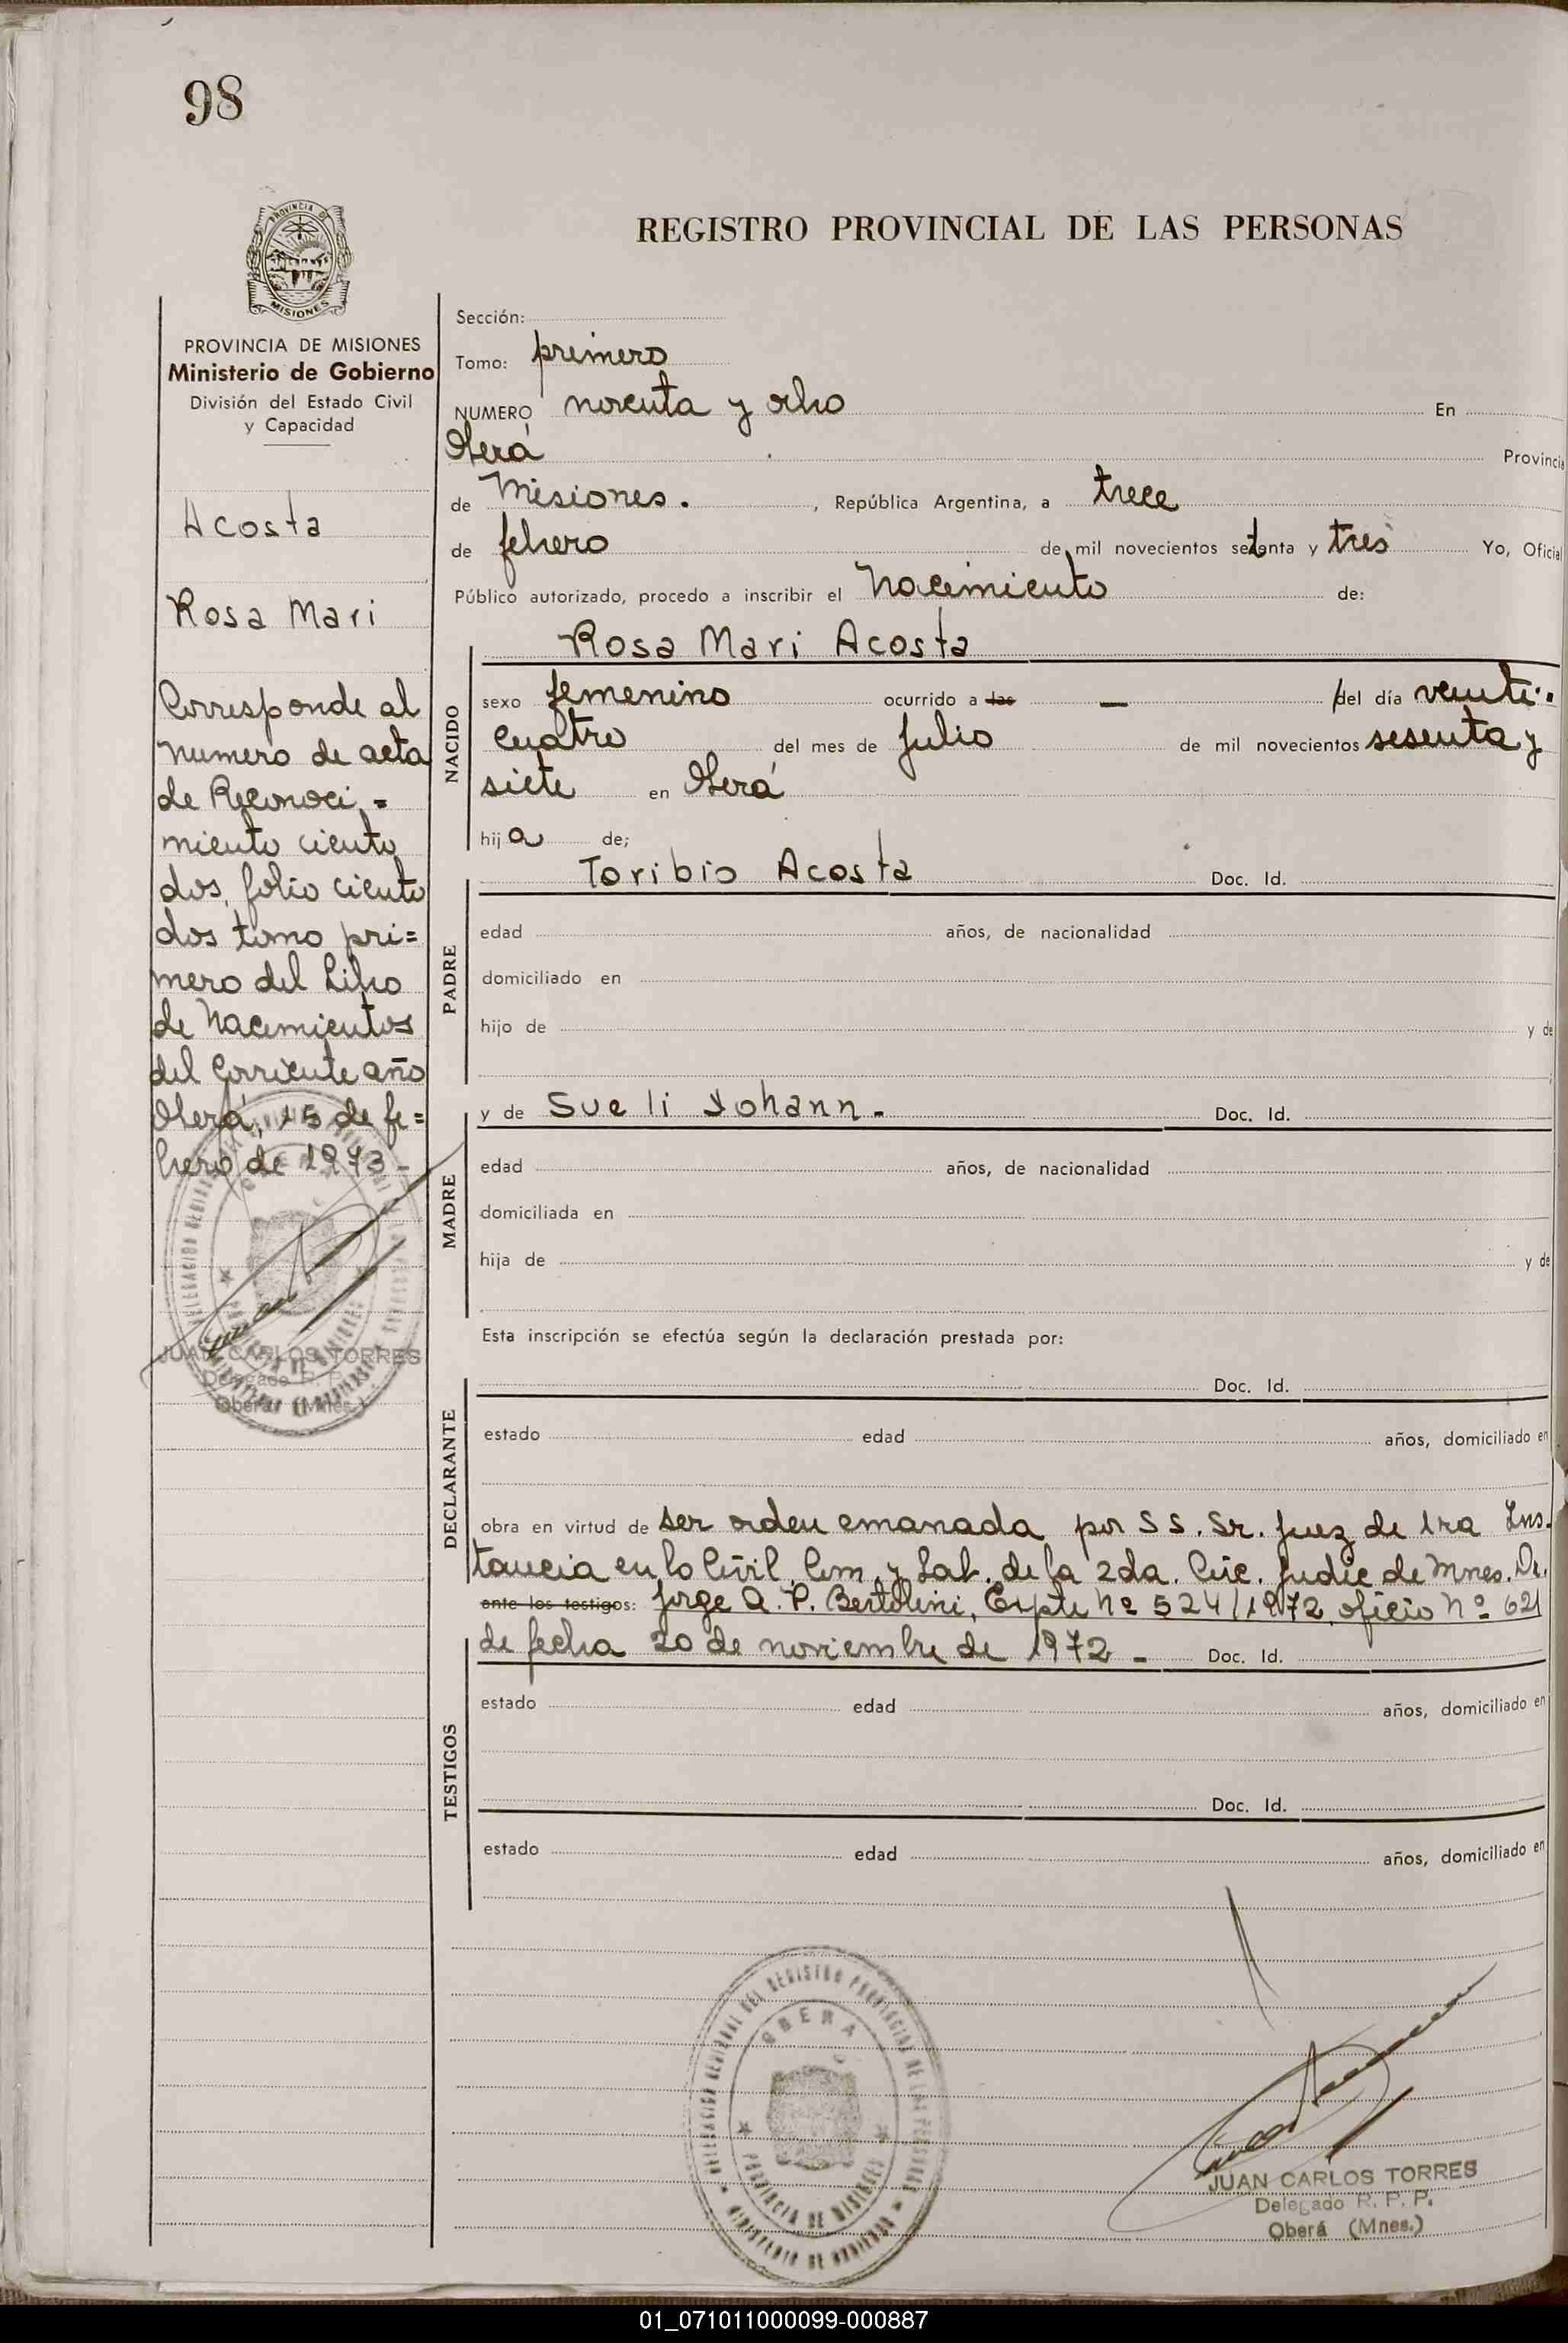 98
PROVINCIA DE
MISIONES
PROVINCIA DE MISIONES
Ministerio de Gobierno
División del Estado Civil
y Capacidad
Acosta
Rosa Mari
Corresponde al
numero de acta
de Reconoci =
miento ciento
dos, folio ciento
dos tomo pri=
mero del Libro
de Nacimientos
del Corriente año
Oberá, 15 de fe=
brero de 1973-
JUAN CARLOS TORRES
Delegado R. P.
Oberá (Mnes.)
REGISTRO PROVINCIAL DE LAS PERSONAS
Sección:
Tomo: primero
NUMERO noventa y ocho En
Oberá Provincia
de Misiones. , República Argentina, a trece
de febrero de mil novecientos setenta y tres Yo, Oficial
Público autorizado, procedo a inscribir el Nacimiento de:
Rosa Mari Acosta
NACIDO
sexo femenino ocurrido a las — del día veinti-
cuatro del mes de Julio de mil novecientos sesenta y
siete en Oberá
hij a de;
Toribio Acosta Doc. Id.
PADRE
edad años, de nacionalidad
domiciliado en
hijo de y de
y de Sueli Johann - Doc. Id.
MADRE
edad años, de nacionalidad
domiciliada en
hija de y de
Esta inscripción se efectúa según la declaración prestada por:
Doc. Id.
DECLARANTE
estado edad años, domiciliado en
obra en virtud de ser orden emanada por S S. Sr. Juez de 1ra Ins-
tancia en lo Civil, Com. y Lab. de la 2da. Circ. Judic de Mnes. Dr.
ante los testigos: Jorge A. P. Bertolini, Expte Nº 524/1972, oficio Nº 621
de fecha 20 de noviembre de 1972 - Doc. Id.
TESTIGOS
estado edad años, domiciliado en
Doc. Id.
estado edad años, domiciliado en
DELEGACION REGIONAL DEL REGISTRO PROVINCIAL DE LAS PERSONAS
OBERA
PROVINCIA DE MISIONES
MINISTERIO DE GOBIERNO
JUAN CARLOS TORRES
Delegado R. P. P.
Oberá (Mnes.)
01_071011000099-000887